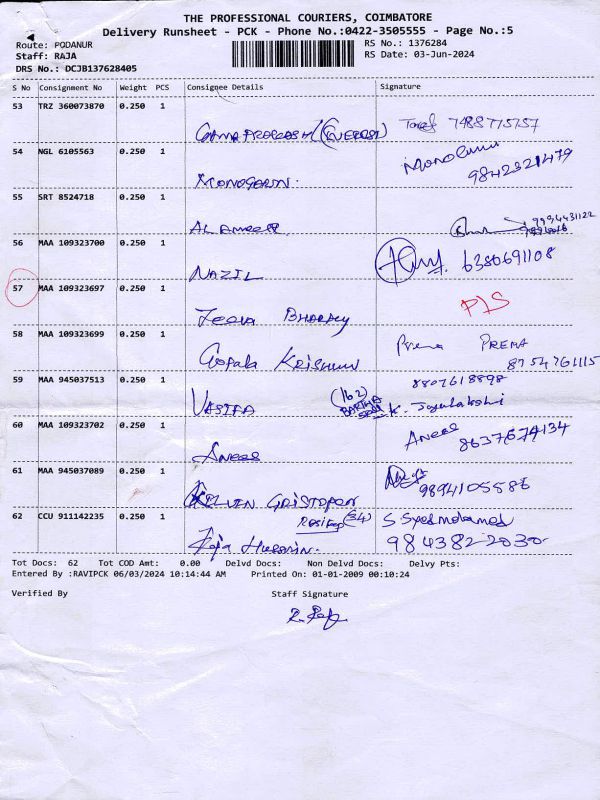 THE PROFESSIONAL COURIERS, COIMBATORE
Delivery Runsheet - PCK - Phone No.:0422-3505555 - Page No.:5
Route: PODANUR
Staff: RAJA
DRS No.: DCJB137628405
RS No.: 1376284
RS Date: 03-Jun-2024
S No Consignment No Weight PCS Consignee Details Signature
53 TRZ 360073870 0.250 1
54 NGL 6105563 0.250 1
MONOGARIN.
9842321479
55 SRT 8524718 0.250 1
AL AMEER
9994431122
56 MAA 109323700 0.250 1
NAZIL
6380691108
57 MAA 109323697 0.250 1
P/S
58 MAA 109323699 0.250 1
Gopala KRISHNAN
Prema PREMA
8754761115
59 MAA 945037513 0.250 1
VASIFA
(162)
8807618898
K. Jayalakshi
60 MAA 109323702 0.250 1
Anees
Anees
8637674134
61 MAA 945037089 0.250 1
KELVIN GRISTOPER
9894105586
62 CCU 911142235 0.250 1
Raja Hussain.
(34)
S Syed mohamed
984382 2030
Tot Docs: 62 Tot COD Amt: 0.00 Delvd Docs: Non Delvd Docs: Delvy Pts:
Entered By :RAVIPCK 06/03/2024 10:14:44 AM Printed On: 01-01-2009 00:10:24
Verified By Staff Signature